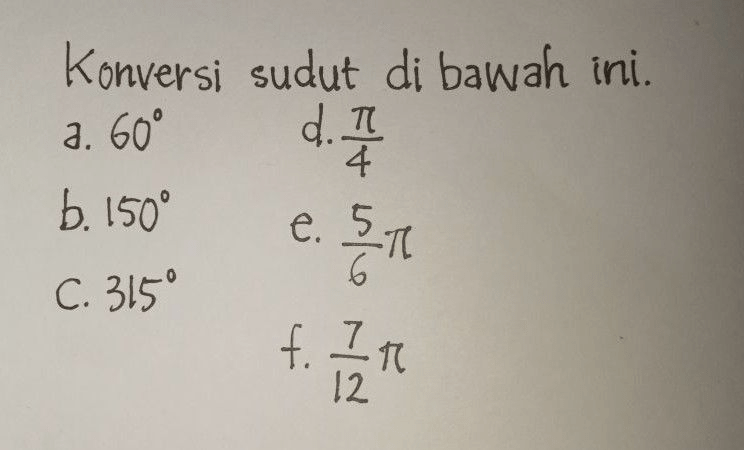 Konversi sudut di bawah ini.
a. 60°
b. 150°
c. 315°
d. π/4
e. 5/6 π
f. 7/12 π